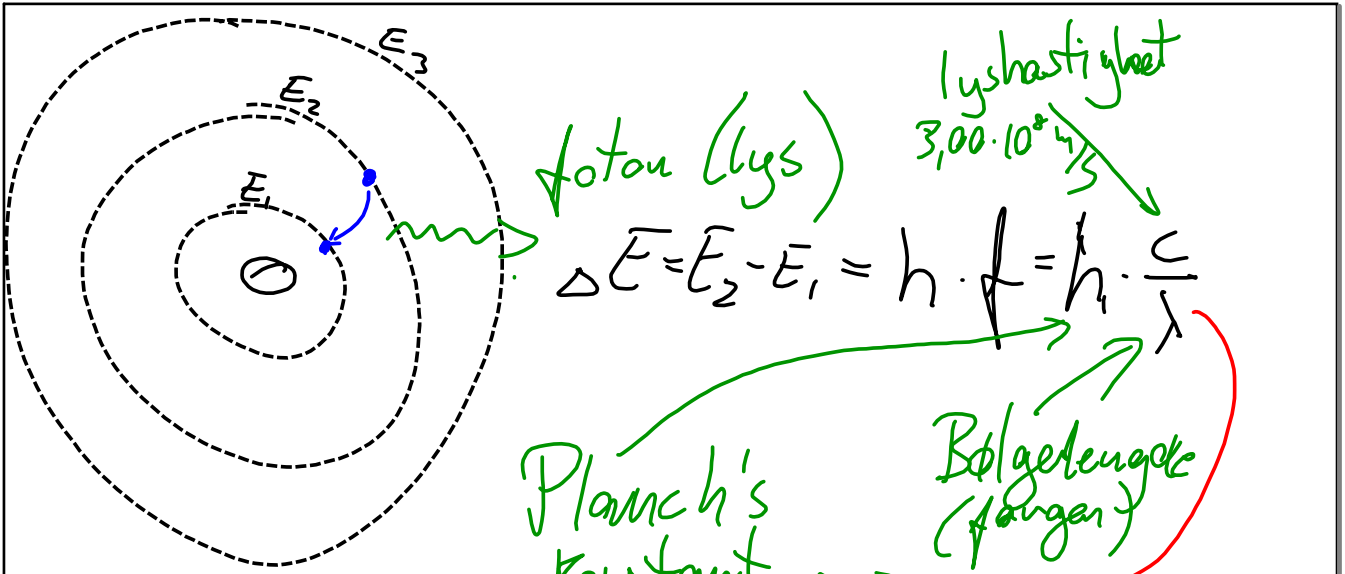 E₃
E₂
E₁
foton (lys)
lyshastighet
3,00·10⁸ m/s
ΔE = E₂ - E₁ = h · f = h · c/λ
Planck's
konstant
Bølgelengde
(fargen)